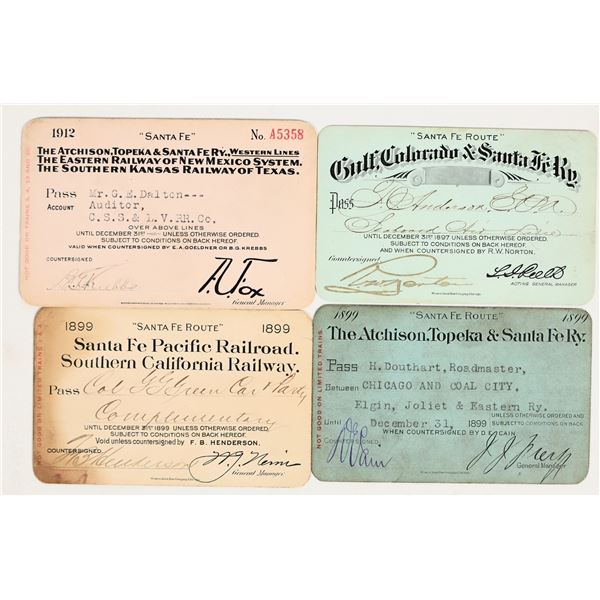 1912 "SANTA FE" No. A5358
The Atchison, Topeka & Santa Fe Ry., Western Lines
The Eastern Railway of New Mexico System.
The Southern Kansas Railway of Texas.
Pass Mr. G.E. Dalton---
Account Auditor,
C.S.S.& L.V.RR.Co.
OVER ABOVE LINES
UNTIL DECEMBER 31ST UNLESS OTHERWISE ORDERED.
SUBJECT TO CONDITIONS ON BACK HEREOF.
VALID WHEN COUNTERSIGNED BY E.A.GOELDNER OR B.G.KREBBS
COUNTERSIGNED
BGKrebbs
A.Fox
General Manager
"SANTA FE ROUTE"
Gulf, Colorado & Santa Fe Ry.
Pass T. Anderson, G.P.A.
Seaboard Air Line
UNTIL DECEMBER 31ST 1897 UNLESS OTHERWISE ORDERED.
SUBJECT TO CONDITIONS ON BACK HEREOF.
WHEN COUNTERSIGNED BY R.W.NORTON.
Countersigned
RWNorton
ACTING GENERAL MANAGER
1899 "SANTA FE ROUTE" 1899
Santa Fe Pacific Railroad.
Southern California Railway.
Pass Col G G Green Car & Party
Complimentary
UNTIL DECEMBER 31ST 1899 UNLESS OTHERWISE ORDERED.
SUBJECT TO CONDITIONS ON BACK HEREOF.
Void unless countersigned by F. B. HENDERSON.
COUNTERSIGNED
FBHenderson
General Manager
NOT GOOD ON LIMITED TRAINS
1899 "SANTA FE ROUTE" 1899
The Atchison, Topeka & Santa Fe Ry.
Pass H. Douthart, Roadmaster,
Between CHICAGO AND COAL CITY.
Elgin, Joliet & Eastern Ry.
UNLESS OTHERWISE ORDERED AND
Until December 31, 1899 SUBJECT TO CONDITIONS ON BACK
WHEN COUNTERSIGNED BY D.E.CAIN.
COUNTERSIGNED
DECain
General Manager
NOT GOOD ON LIMITED TRAINS.